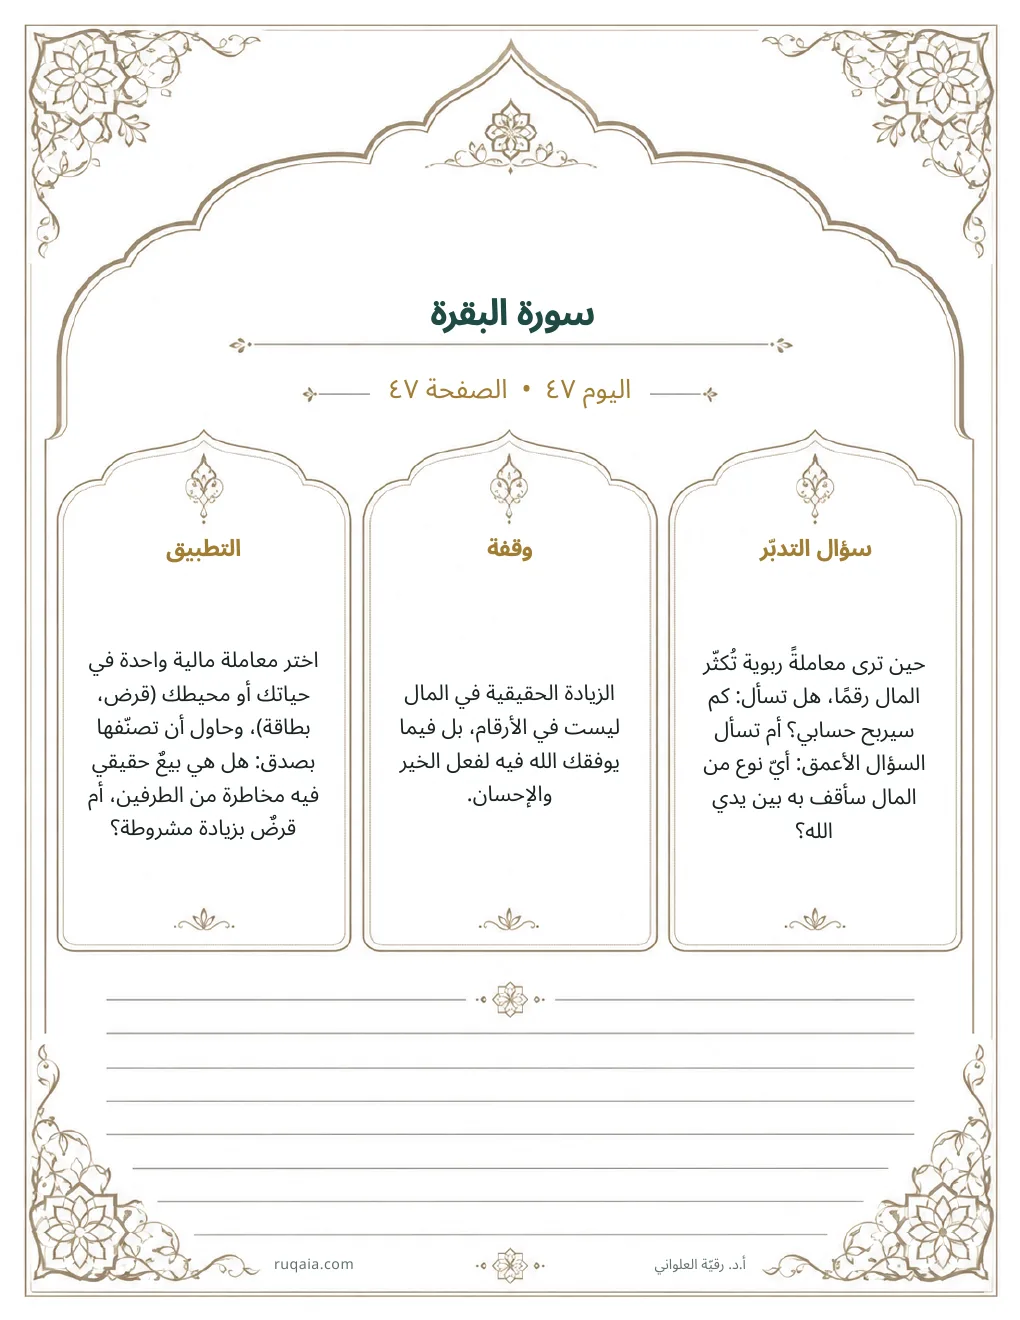 سورة البقرة
اليوم ٤٧ • الصفحة ٤٧
سؤال التدبّر
حين ترى معاملةً ربوية تُكثّر
المال رقمًا، هل تسأل: كم
سيربح حسابي؟ أم تسأل
السؤال الأعمق: أيّ نوع من
المال سأقف به بين يدي
الله؟
وقفة
الزيادة الحقيقية في المال
ليست في الأرقام، بل فيما
يوفقك الله فيه لفعل الخير
والإحسان.
التطبيق
اختر معاملة مالية واحدة في
حياتك أو محيطك (قرض،
بطاقة)، وحاول أن تصنّفها
بصدق: هل هي بيعٌ حقيقي
فيه مخاطرة من الطرفين، أم
قرضٌ بزيادة مشروطة؟
أ.د. رقيّة العلواني
ruqaia.com